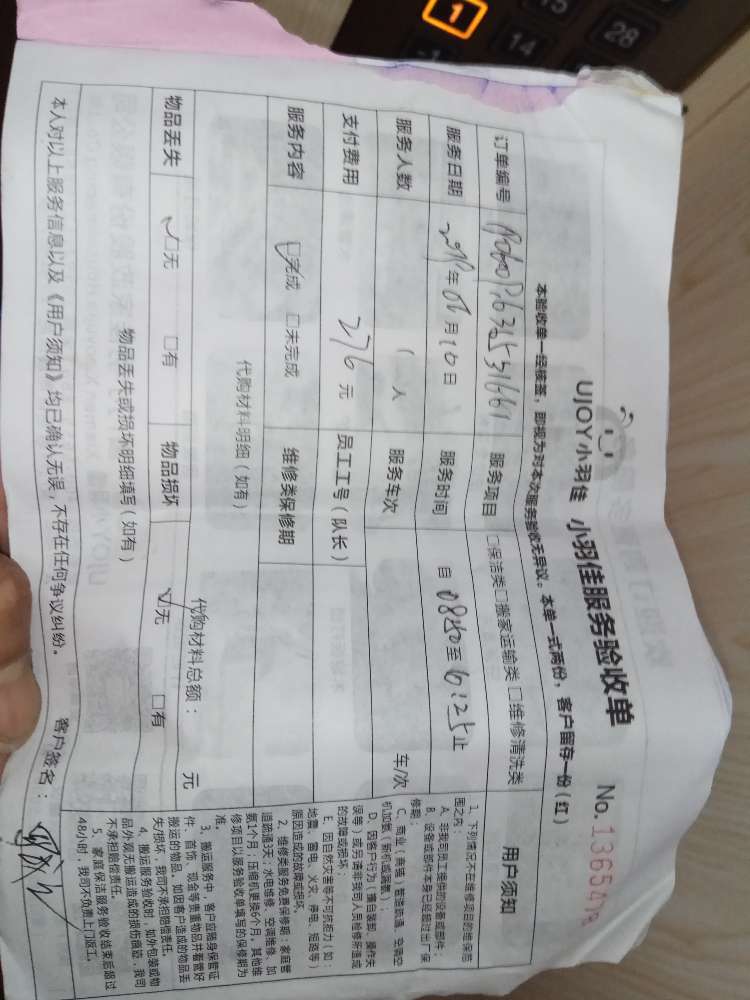 UJOY小羽佳 小羽佳服务验收单 No. 1365478
本验收单一经核签，即视为对本次服务验收无异议。本单一式两份，客户留存一份（红）
订单编号 服务项目 □保洁类□搬家运输类□维修清洗类
服务日期 年 月10日 服务时间 自0850至 止
服务人数 人 服务车次 车/次
支付费用 276元 员工工号（队长）
服务内容 □完成 □未完成 维修类保修期
代购材料明细（如有） 代购材料总额： 元
物品丢失 □无 □有 物品损坏 □无 □有
物品丢失或损坏明细填写（如有）
本人对以上服务信息以及《用户须知》均已确认无误，不存在任何争议纠纷。 客户签名：
用户须知
1、下列情况不在维修项目的维保范
围之内：
A、非我司员工提供的设备或部件；
B、设备或部件本身已经超过出厂保
修期；
C、商业（商铺）管道疏通、空调空
机加氨（新机或漏氨）；
D、因客户行为（擅自装卸、操作失
误等）或另请非我司人员检修所造成
的故障或损坏；
E、因自然灾害等不可抗拒力（如：
地震、雷电、火灾、停电、短路等）
原因造成的故障或损坏。
2、维修类服务免费保修期：家庭管
道疏通3天；水电维修、空调维修、加
氨1个月；压缩机更换6个月，其他维
修项目以服务验收单填写的保修期为
准。
3、搬运服务中，客户应随身保管证
件、首饰、现金等贵重物品并看管好
搬运的物品，如因客户造成的物品丢
失/损坏，我司不承担赔偿责任。
4、搬运服务验收时，如外包装或物
品外观无搬运造成的损伤痕迹，我司
不承担赔偿责任。
5、家庭保洁服务验收结束后超过
48小时，我司不负责上门返工。
1
15
14
28